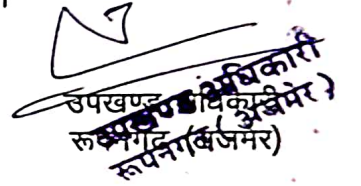 उपखण्ड अधिकारी
रूपनगढ़ (अजमेर)
उपखण्ड अधिकारी
रूपनगढ़ (अजमेर)